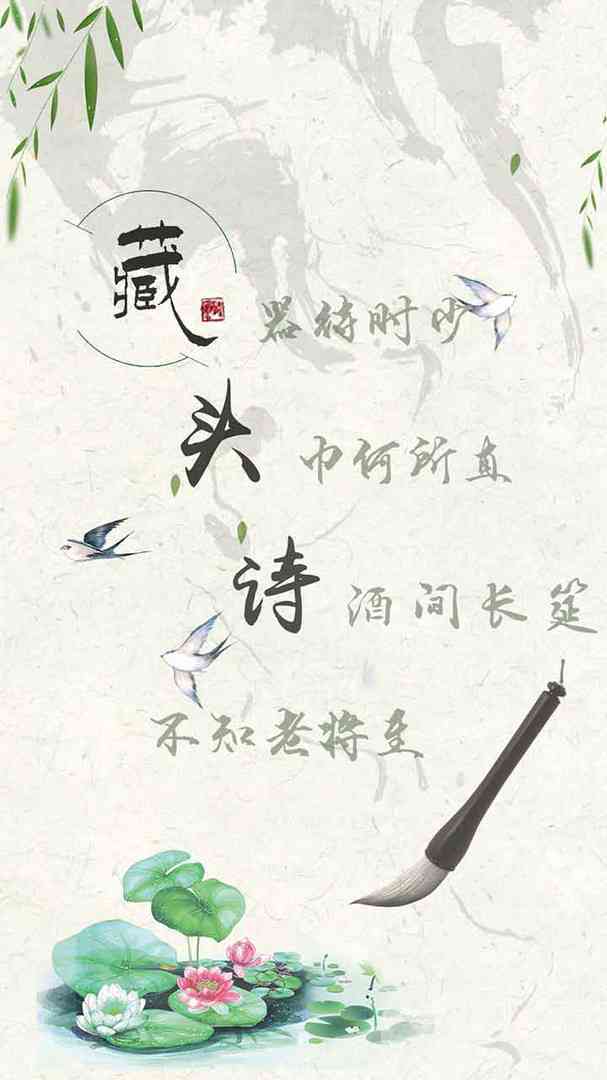 藏器待时少
头巾何所直
诗酒间长筵
不知老将至